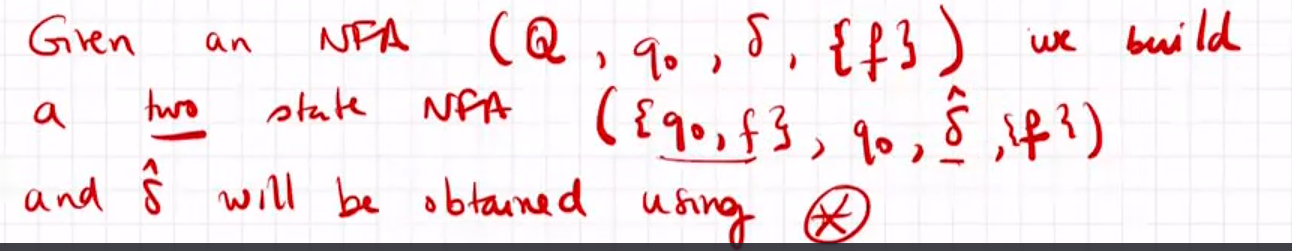 Given an NFA (Q, q₀, δ, {f}) we build
a two state NFA ({q₀, f}, q₀, δ̂, {f})
and δ̂ will be obtained using ⊛